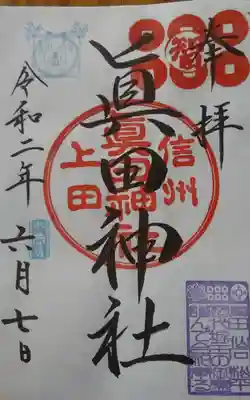 奉拝
眞田神社
信州
上田
眞田神社
令和二年
六月七日